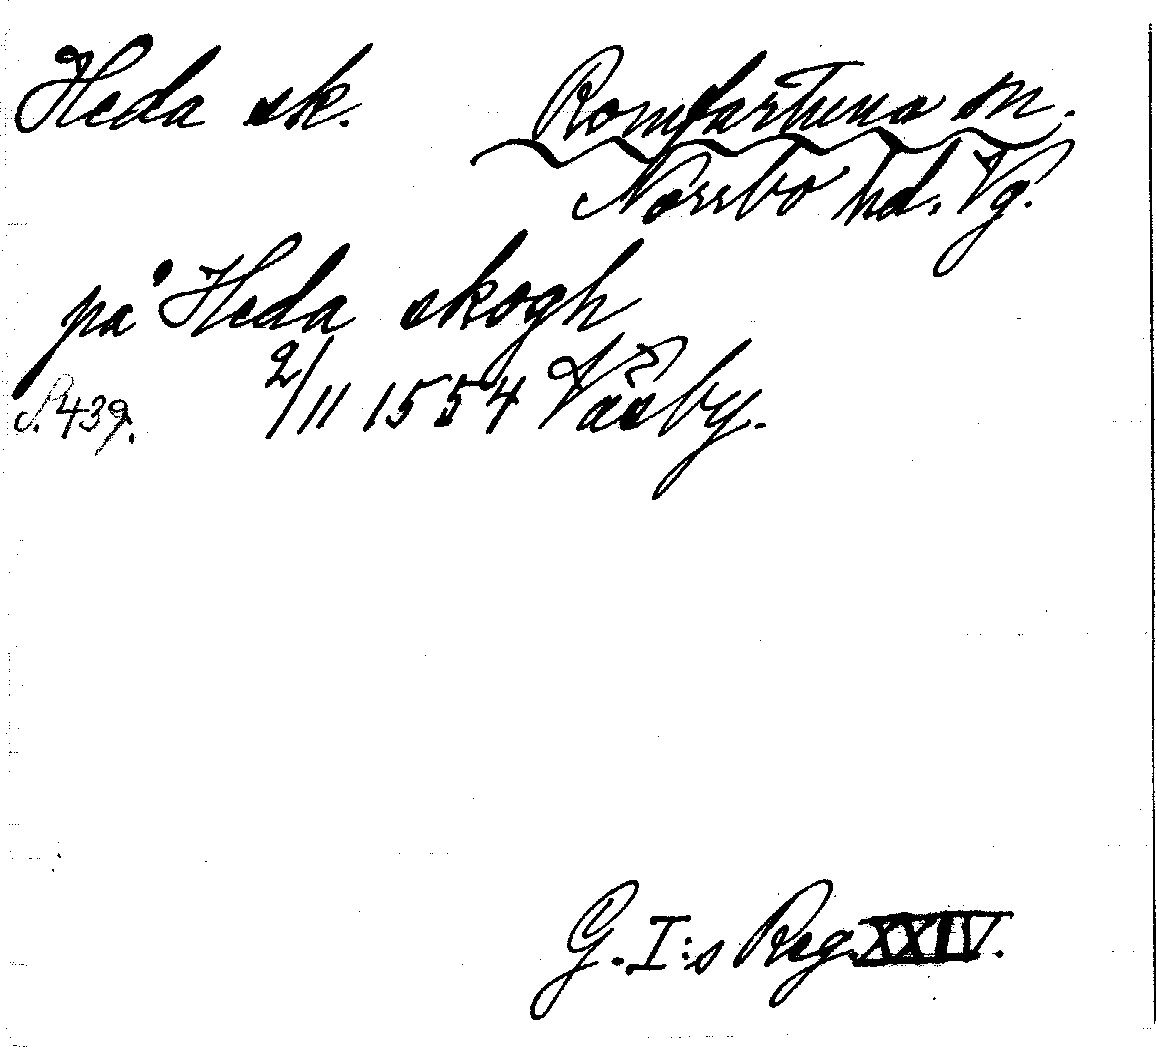 Heda sk. Romfartuna sn.
Norrbo hd. Vg.
på Heda skogh
S. 439. 2/11 1554 Väsby.
G. I:s Reg. XXIV.